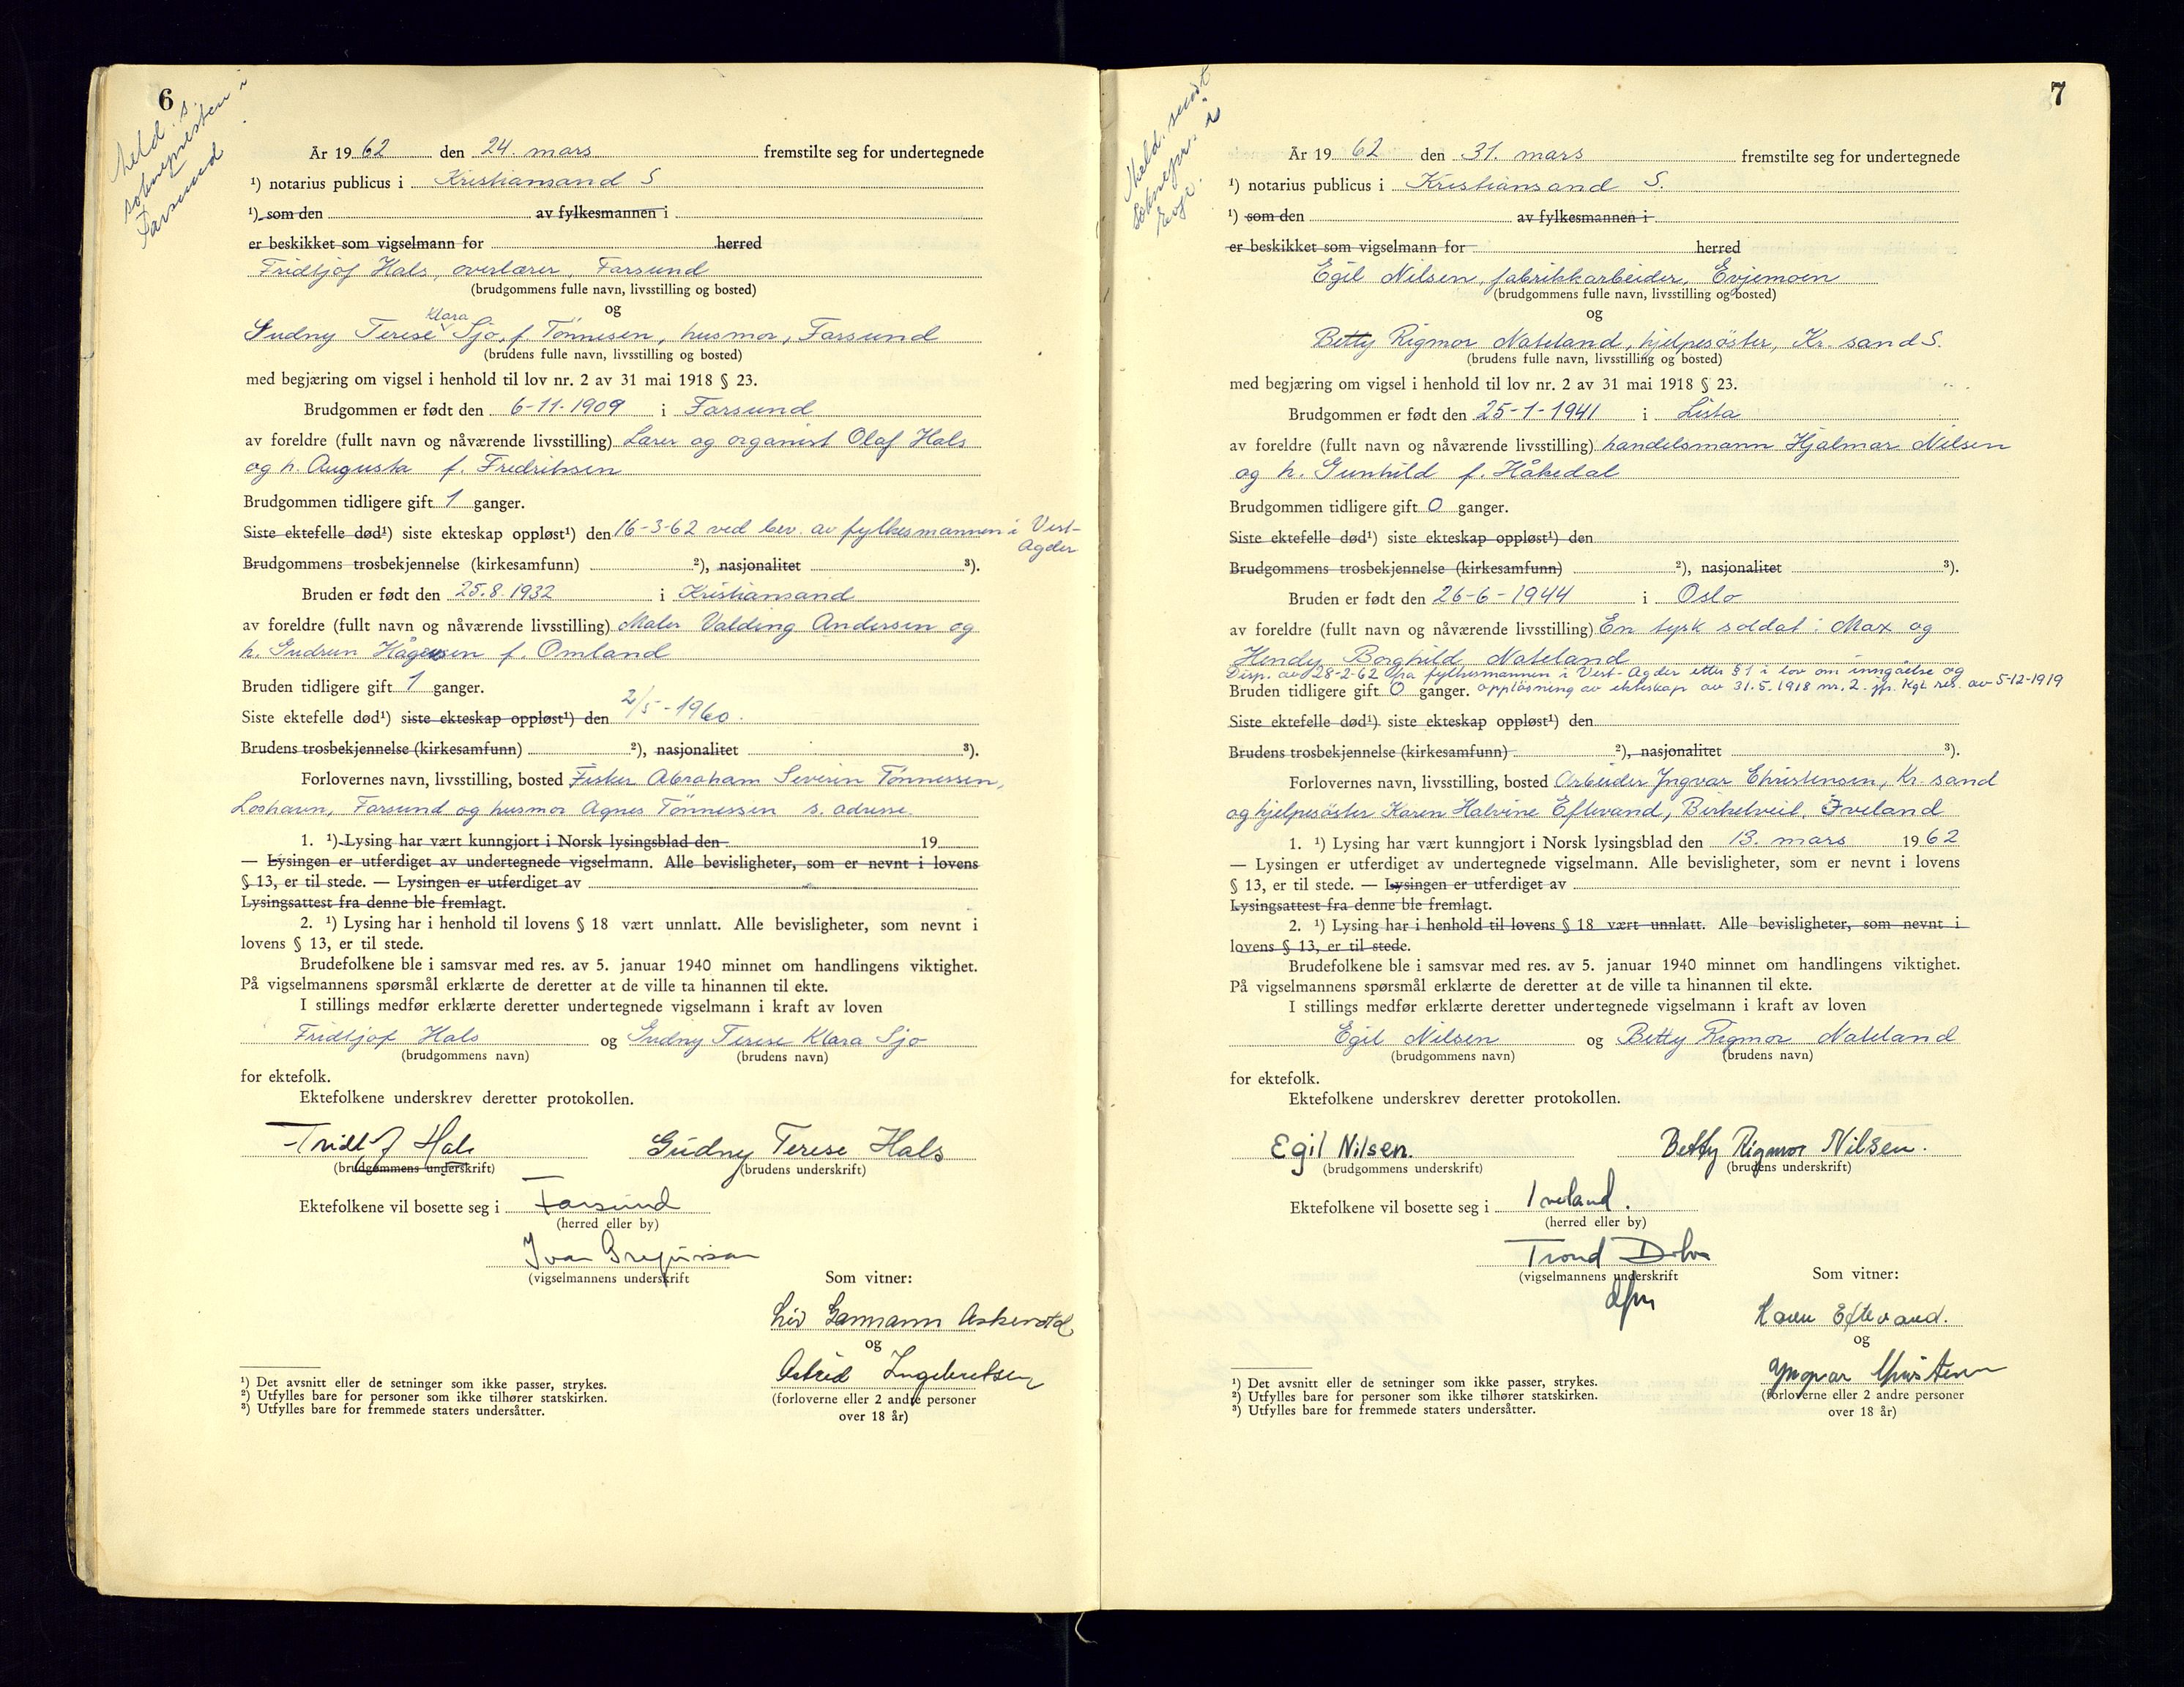 6
Meld. s.
soknepresten i
Farsund
År 19 62 den 24. mars fremstilte seg for undertegnede
¹) notarius publicus i Kristiansand S
¹) som den av fylkesmannen i
er beskikket som vigselmann for herred
Fridtjof Hals, overlærer, Farsund
(brudgommens fulle navn, livsstilling og bosted)
og
Klara
Gudny Terese Sjo, f. Tönnesen, husmor, Farsund
(brudens fulle navn, livsstilling og bosted)
med begjæring om vigsel i henhold til lov nr. 2 av 31 mai 1918 § 23.
Brudgommen er født den 6-11-1909 i Farsund
av foreldre (fullt navn og nåværende livsstilling) Lærer og organist Olaf Hals
og h. Augusta f. Fredriksen
Brudgommen tidligere gift 1 ganger.
Siste ektefelle død¹) siste ekteskap oppløst¹) den 16-3-62 ved bev. av fylkesmannen i Vest-
Agder
Brudgommens trosbekjennelse (kirkesamfunn) ²), nasjonalitet ³).
Bruden er født den 25.8.1932 i Kristiansand
av foreldre (fullt navn og nåværende livsstilling) Maler Valding Andersen og
h. Gudrun Hågensen f. Omland
Bruden tidligere gift 1 ganger.
Siste ektefelle død¹) siste ekteskap oppløst¹) den 2/5-1960.
Brudens trosbekjennelse (kirkesamfunn) ²), nasjonalitet ³).
Forlovernes navn, livsstilling, bosted Fisker Abraham Severin Tönnessen,
Loshavn, Farsund og husmor Agnes Tönnessen s. adresse.
1. ¹) Lysing har vært kunngjort i Norsk lysingsblad den 19
— Lysingen er utferdiget av undertegnede vigselmann. Alle bevisligheter, som er nevnt i lovens
§ 13, er til stede. — Lysingen er utferdiget av
Lysingsattest fra denne ble fremlagt.
2. ¹) Lysing har i henhold til lovens § 18 vært unnlatt. Alle bevisligheter, som nevnt i
lovens § 13, er til stede.
Brudefolkene ble i samsvar med res. av 5. januar 1940 minnet om handlingens viktighet.
På vigselmannens spørsmål erklærte de deretter at de ville ta hinannen til ekte.
I stillings medfør erklærte deretter undertegnede vigselmann i kraft av loven
Fridtjof Hals og Gudny Terese Klara Sjo
(brudgommens navn) (brudens navn)
for ektefolk.
Ektefolkene underskrev deretter protokollen.
Fridtjof Hals Gudny Terese Hals
(brudgommens underskrift) (brudens underskrift)
Ektefolkene vil bosette seg i Farsund
(herred eller by)
Ivar
(vigselmannens underskrift
Som vitner:
Liv Garmann
og
Astrid Ingebretsen
(forloverne eller 2 andre personer
over 18 år)
¹) Det avsnitt eller de setninger som ikke passer, strykes.
²) Utfylles bare for personer som ikke tilhører statskirken.
³) Utfylles bare for fremmede staters undersåtter.
7
Meld. sendt
soknepr. i
Evje.
År 19 62 den 31. mars fremstilte seg for undertegnede
¹) notarius publicus i Kristiansand S.
¹) som den av fylkesmannen i
er beskikket som vigselmann for herred
Egil Nilsen, fabrikkarbeider, Evjemoen
(brudgommens fulle navn, livsstilling og bosted)
og
Betty Rigmor Nateland, hjelpesöster, Kr. sand S.
(brudens fulle navn, livsstilling og bosted)
med begjæring om vigsel i henhold til lov nr. 2 av 31 mai 1918 § 23.
Brudgommen er født den 25-1-1941 i Lista
av foreldre (fullt navn og nåværende livsstilling) handelsmann Hjalmar Nilsen
og h. Gunhild f. Håkedal
Brudgommen tidligere gift 0 ganger.
Siste ektefelle død¹) siste ekteskap oppløst¹) den
Brudgommens trosbekjennelse (kirkesamfunn) ²), nasjonalitet ³).
Bruden er født den 26-6-1944 i Oslo
av foreldre (fullt navn og nåværende livsstilling) En tysk soldat: Max og
Hendy Borghild Nateland
Disp. av 28-2-62 fra fylkesmannen i Vest-Agder etter § 1 i lov om inngåelse og
Bruden tidligere gift 0 ganger. opplösning av ekteskap av 31.5.1918 nr. 2. jfr. Kgl. res. av 5-12-1919
Siste ektefelle død¹) siste ekteskap oppløst¹) den
Brudens trosbekjennelse (kirkesamfunn) ²), nasjonalitet ³).
Forlovernes navn, livsstilling, bosted Arbeider Yngvar Christensen, Kr. sand
og hjelpesöster Karen Halvine Eftevand, Birketveit, Iveland
1. ¹) Lysing har vært kunngjort i Norsk lysingsblad den 13. mars 1962
— Lysingen er utferdiget av undertegnede vigselmann. Alle bevisligheter, som er nevnt i lovens
§ 13, er til stede. — Lysingen er utferdiget av
Lysingsattest fra denne ble fremlagt.
2. ¹) Lysing har i henhold til lovens § 18 vært unnlatt. Alle bevisligheter, som nevnt i
lovens § 13, er til stede.
Brudefolkene ble i samsvar med res. av 5. januar 1940 minnet om handlingens viktighet.
På vigselmannens spørsmål erklærte de deretter at de ville ta hinannen til ekte.
I stillings medfør erklærte deretter undertegnede vigselmann i kraft av loven
Egil Nilsen og Betty Rigmor Nateland
(brudgommens navn) (brudens navn)
for ektefolk.
Ektefolkene underskrev deretter protokollen.
Egil Nilsen. Betty Rigmor Nilsen.
(brudgommens underskrift) (brudens underskrift)
Ektefolkene vil bosette seg i Iveland.
(herred eller by)
Trond Dolva
(vigselmannens underskrift
dfm
Som vitner:
Karen Eftevand.
og
Yngvar Christensen
(forloverne eller 2 andre personer
over 18 år)
¹) Det avsnitt eller de setninger som ikke passer, strykes.
²) Utfylles bare for personer som ikke tilhører statskirken.
³) Utfylles bare for fremmede staters undersåtter.